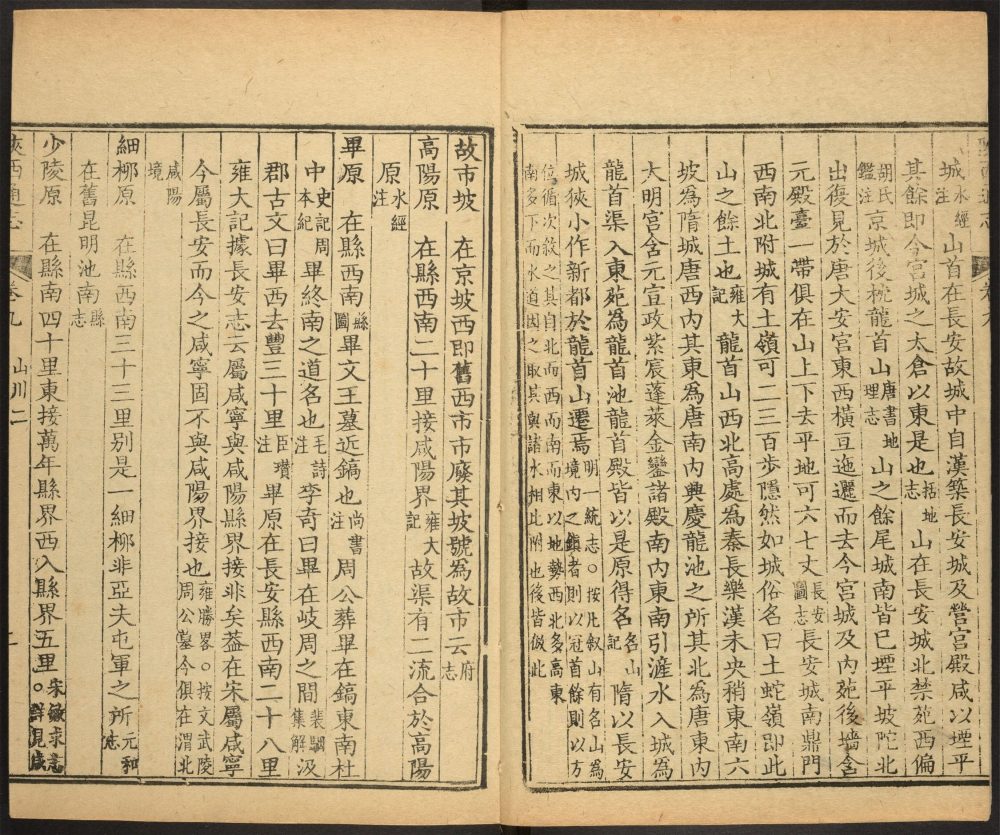 城水經注山首在長安故城中自漢築長安城及營宮殿咸以堙平
其餘即今宮城之太倉以東是也括地志山在長安城北禁苑西偏
胡氏鑑注京城後枕龍首山唐書地理志山之餘尾城南皆已堙平坡陀北
出復見於唐大安宮東西橫亘迤邐而去今宮城及內苑後墻含
元殿臺一帶俱在山上下去平地可六七丈長安圖志長安城南鼎門
西南北附城有土嶺可二三百步隱然如城俗名曰土蛇嶺即此
山之餘土也雍大記龍首山西北高處為秦長樂漢未央稍東南六
坡為隋城唐西內其東為唐南內興慶龍池之所其北為唐東內
大明宮含元宣政紫宸蓬萊金鑾諸殿南內東南引滻水入城為
龍首渠入東苑為龍首池龍首殿皆以是原得名名山記隋以長安
城狹小作新都於龍首山遷焉明一統志○按凡敘山有名山為境內之鎮者則以冠首餘則以方
位循次敘之其自北而西而南而東以地勢西北多高東南多下而水道因之取其輿諸水相比附也後皆倣此
故市坡 在京坡西即舊西市市廢其坡號為故市云府志
高陽原 在縣西南二十里接咸陽界雍大記故渠有二流合於高陽
原水經注
畢原 在縣西南縣圖畢文王墓近鎬也尚書注周公葬畢在鎬東南杜
中史記周本紀畢終南之道名也毛詩注李奇曰畢在岐周之間裴駰集解汲
郡古文曰畢西去豐三十里臣瓚注畢原在長安縣西南二十八里
雍大記據長安志云屬咸寧與咸陽縣界接非矣葢在宋屬咸寧
今屬長安而今之咸寧固不與咸陽界接也雍勝畧○按文武陵周公墓今俱在渭北
咸陽境
細柳原 在縣西南三十三里別是一細柳非亞夫屯軍之所元和志
在舊昆明池南縣志
少陵原 在縣南四十里東接萬年縣界西入縣界五里○宋敏求志詳見咸
陝西通志 卷九 山川二 二